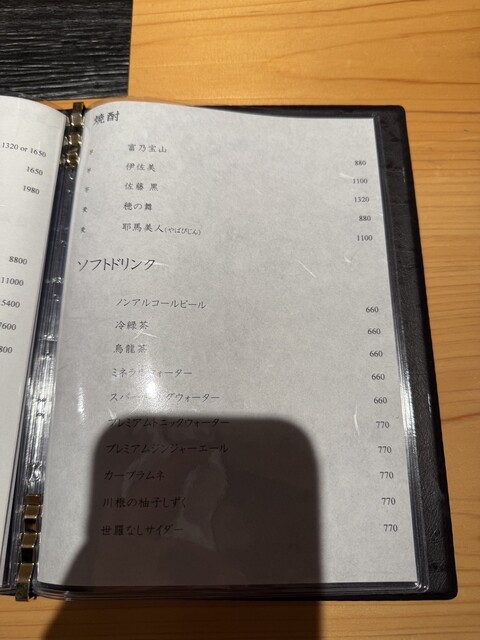 1320 or 1650
1650
1980
8800
11000
5400
7600
800
焼酎
芋 富乃宝山 880
芋 伊佐美 1100
芋 佐藤 黒 1320
麦 穂の舞 880
麦 耶馬美人(やばびじん) 1100
ソフトドリンク
ノンアルコールビール 660
冷緑茶 660
烏龍茶 660
ミネラルウォーター 660
スパークリングウォーター 660
プレミアムトニックウォーター 770
プレミアムジンジャーエール 770
カープラムネ 770
川根の柚子しずく 770
世羅なしサイダー 770